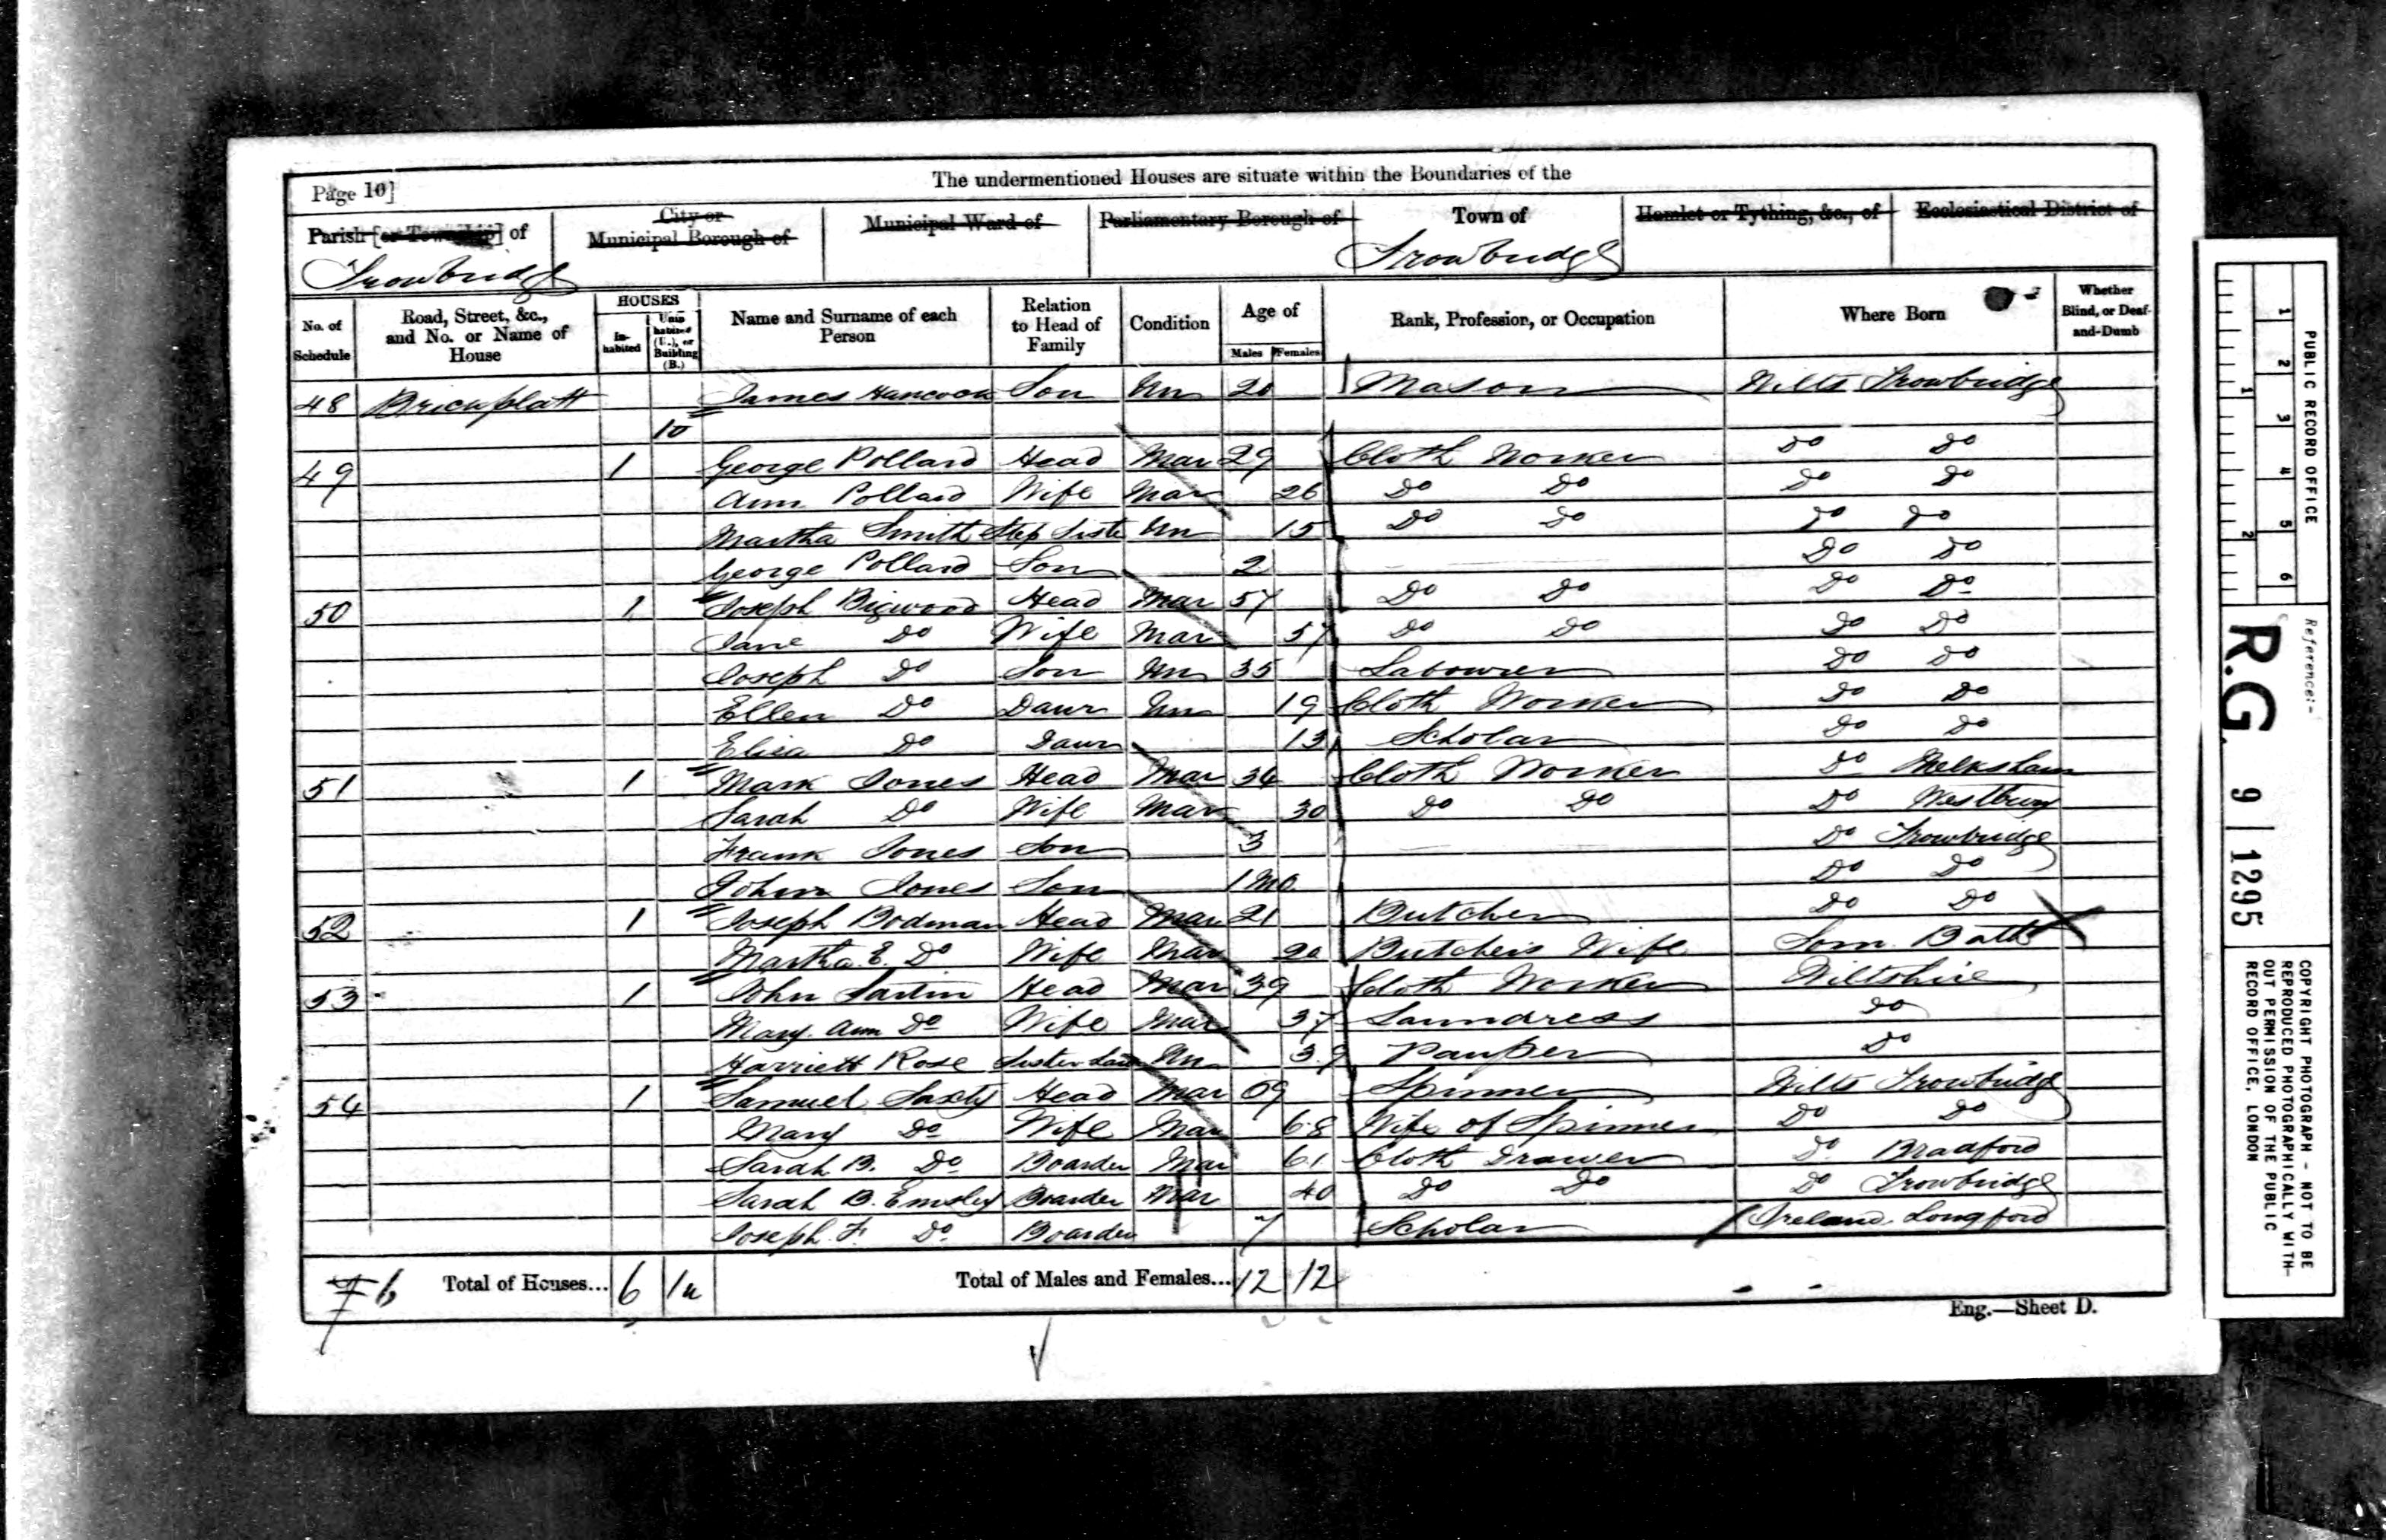 The undermentioned Houses are situate within the Boundaries of the
Page 10]
Parish [or Township] of
City or Municipal Borough of
Municipal Ward of
Parliamentary Borough of
Town of
Hamlet or Tything, &c., of
Ecclesiastical District of
Trowbridge Trowbridge
No. of Schedule
Road, Street, &c., and No. or Name of House
HOUSES
In-habited
Unin-habited (U.), or Building (B.)
Name and Surname of each Person
Relation to Head of Family
Condition
Age of
Males Females
Rank, Profession, or Occupation
Where Born
Whether Blind, or Deaf-and-Dumb
48 Brickplatt James Hancock Son Un 20 Mason Wilts Trowbridge
10
49 1 George Pollard Head Mar 29 Cloth Worker Do Do
Ann Pollard Wife Mar 26 Do Do Do Do
Martha Smith Step Siste Un 15 Do Do Do Do
George Pollard Son 2 Do Do
50 1 Joseph Bigwood Head Mar 57 Do Do Do Do
Jane Do Wife Mar 57 Do Do Do Do
Joseph Do Son Un 35 Labourer Do Do
Ellen Do Daur Un 19 Cloth Worker Do Do
Eliza Do Daur 13 Scholar Do Do
51 1 Mark Jones Head Mar 34 Cloth Worker Do Melksham
Sarah Do Wife Mar 30 Do Do Do Westbury
Frank Jones Son 3 Do Trowbridge
John Jones Son 1 Mo Do Do
52 1 Joseph Bodman Head Mar 21 Butcher Do Do
Martha E. Do Wife Mar 20 Butchers Wife Som Bath
53 1 John Sartin Head Mar 39 Cloth Worker Wiltshire
Mary Ann Do Wife Mar 37 Laundress Do
Harriett Rose Sister Law Un 39 Pauper Do
54 1 Samuel Saxty Head Mar 69 Spinner Wilts Trowbridge
Mary Do Wife Mar 68 Wife of Spinner Do Do
Sarah B. Do Boarder Mar 61 Cloth Drawer Do Bradford
Sarah B. Emsley Boarder Mar 40 Do Do Do Trowbridge
Joseph F. Do Boarder 7 Scholar Ireland Longford
6 Total of Houses... 6 Total of Males and Females... 12 12
Eng.—Sheet D.
1 2 3 4 5 6
1 2
PUBLIC RECORD OFFICE
Reference:-
R.G. 9 / 1295
COPYRIGHT PHOTOGRAPH - NOT TO BE
REPRODUCED PHOTOGRAPHICALLY WITH-
OUT PERMISSION OF THE PUBLIC
RECORD OFFICE, LONDON